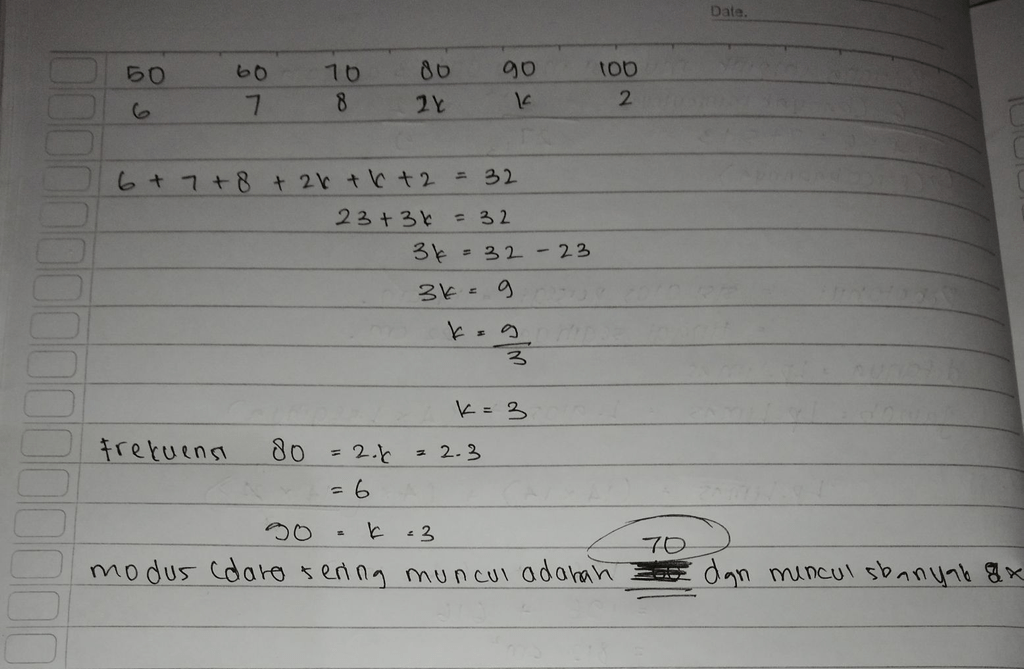 Date.
50 60 70 80 90 100
6 7 8 2k k 2
6 + 7 + 8 + 2k + k + 2 = 32
23 + 3k = 32
3k = 32 - 23
3k = 9
k = 9
3
k = 3
frekuensi 80 = 2.k = 2.3
= 6
90 = k = 3
70
modus (data sering muncul adalah dgn muncul sbanyak 8x